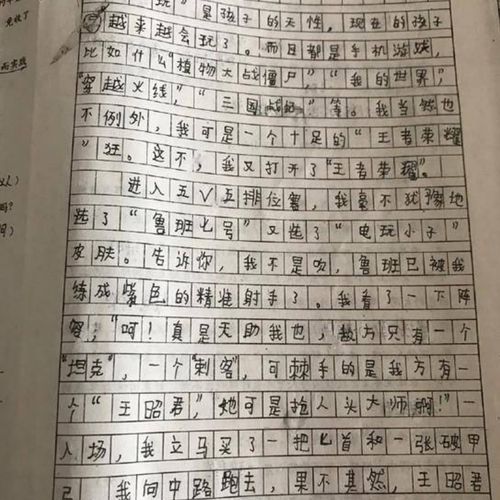 玩”是孩子的天性,现在的孩子
越来越会玩了。而且都是手机游戏,
比如什么“植物大战僵尸”,“我的世界”,
“穿越火线”,“三国”等。我当然也
不例外,我可是一个十足的“王者荣耀
”狂。这不,我又打开了“王者荣耀”。
进入五V五排位赛,我毫不犹豫地
选了“鲁班七号”又选了“电玩小子”
皮肤。告诉你,我不是吹,鲁班已被我
练成紫色的精准射手了。我看了一下阵
容,“呵!真是天助我也,敌方只有一个
“坦克”,一个“刺客”,可棘手的是我方有一
个“王昭君”,她可是抢人头大师啊!”一
入场,我立马买了一把匕首和一张破甲
弓 我向中路跑去,果不其然,王昭君